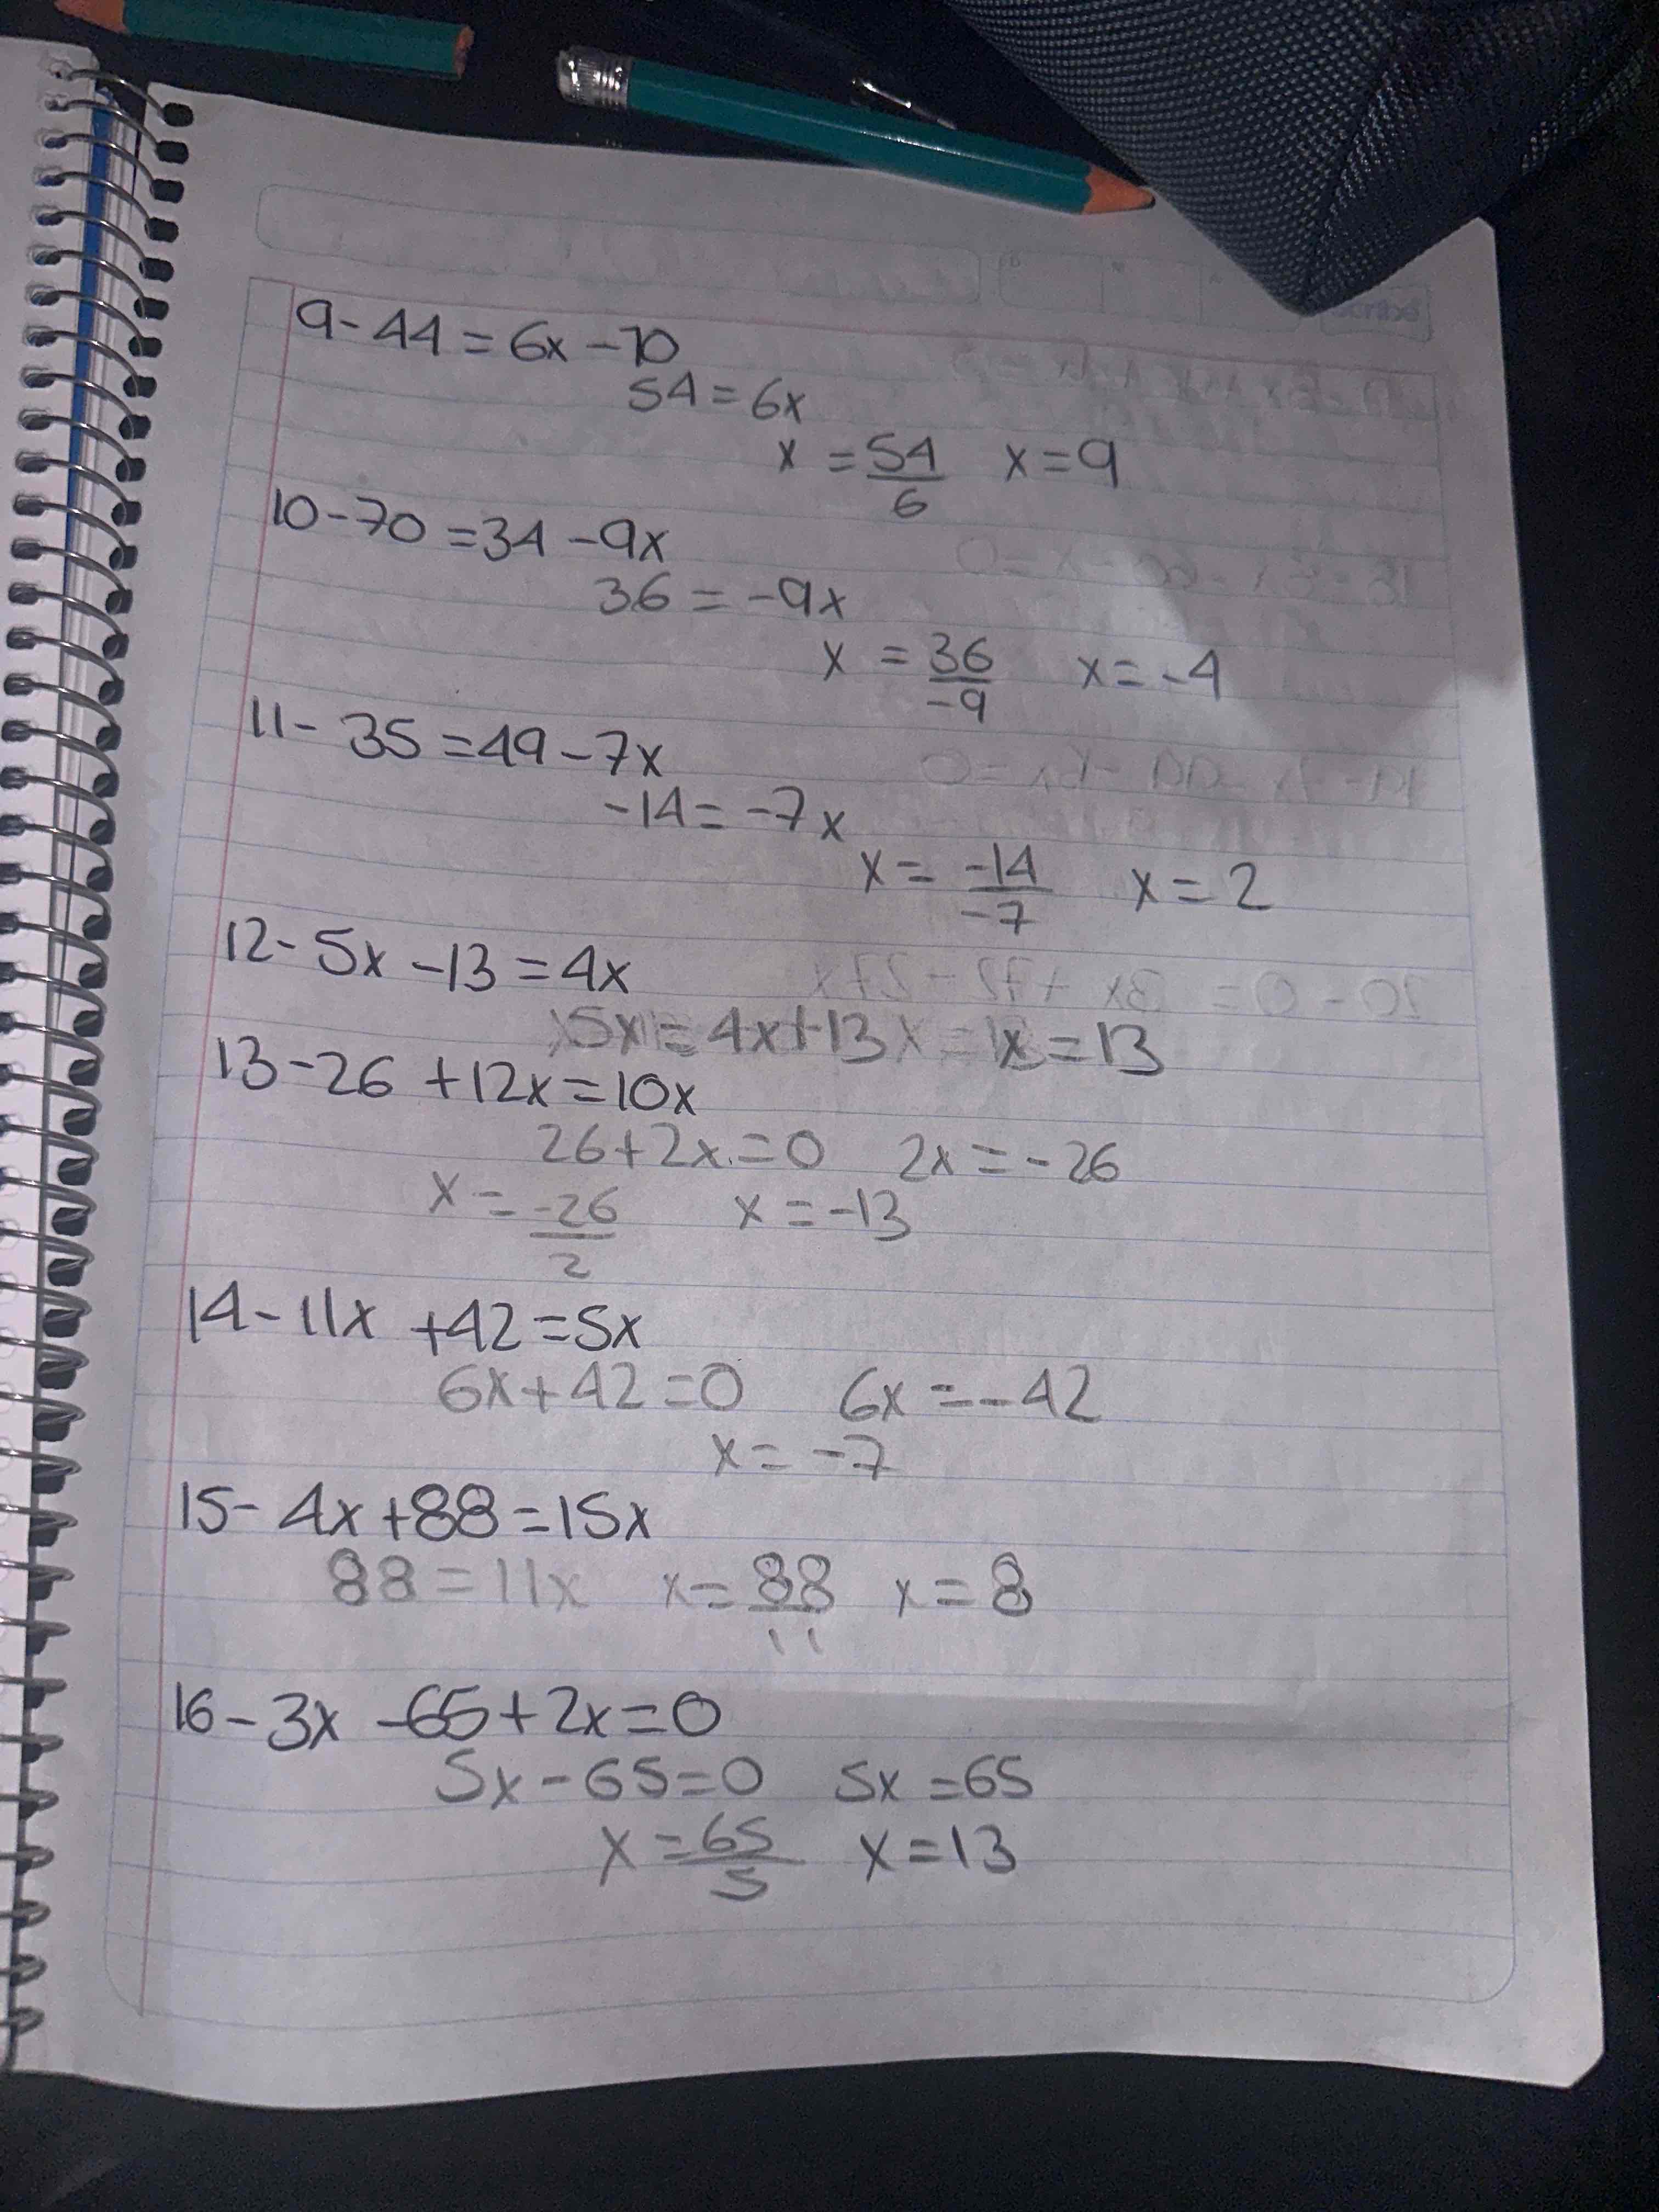 9- 44 = 6x - 10
54 = 6x
x = 54/6 x = 9
10- 70 = 34 - 9x
36 = -9x
x = 36/-9 x = -4
11- 35 = 49 - 7x
-14 = -7x
x = -14/-7 x = 2
12- 5x - 13 = 4x
5x = 4x + 13 x = 13
13- 26 + 12x = 10x
26 + 2x = 0 2x = -26
x = -26/2 x = -13
14- 11x + 42 = 5x
6x + 42 = 0 6x = -42
x = -7
15- 4x + 88 = 15x
88 = 11x x = 88/11 x = 8
16- 3x - 65 + 2x = 0
5x - 65 = 0 5x = 65
x = 65/5 x = 13